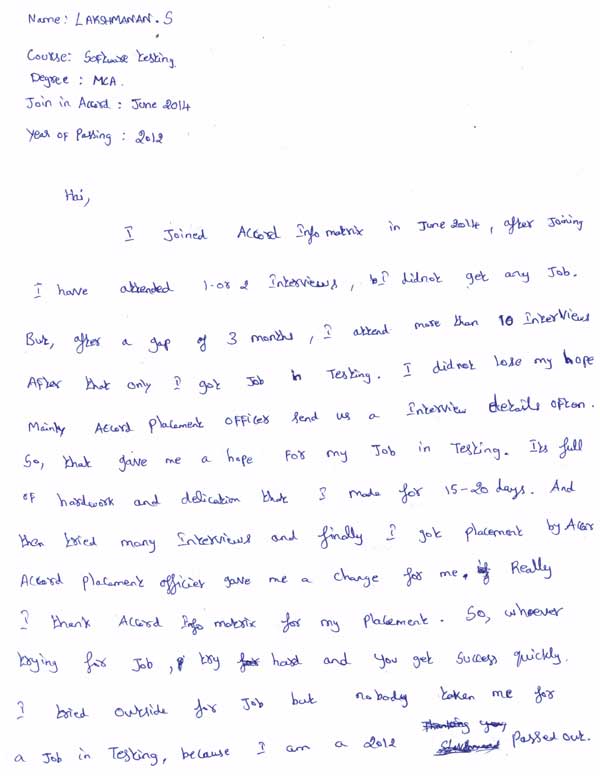 Name: LAKSHMANAN.S
Course: Software testing
Degree : MCA.
Join in Accord : June 2014
Year of Passing : 2012
Hai,
I Joined Accord Info matrix in June 2014, after Joining
I have attended 1-or 2 Interviews, I didnot get any Job.
But, after a gap of 3 months, I attend more than 10 Interviews
After that only I got Job in Testing. I didnot lose my hope
Mainly Accord Placement officer send us a Interview details ofton.
So, that gave me a hope for my Job in Testing. Its full
of hardwork and delication that I made for 15-20 days. And
then tried many Interviews and finally I got placement by Accor
Accord placement officier gave me a change for me. Really
I thank Accord Info matrix for my Placement. So, whoever
trying for Job, try hard and you get success quickly.
I tried outside for Job but nobody taken me for
a Job in Testing, because I am a 2012 Passed out.